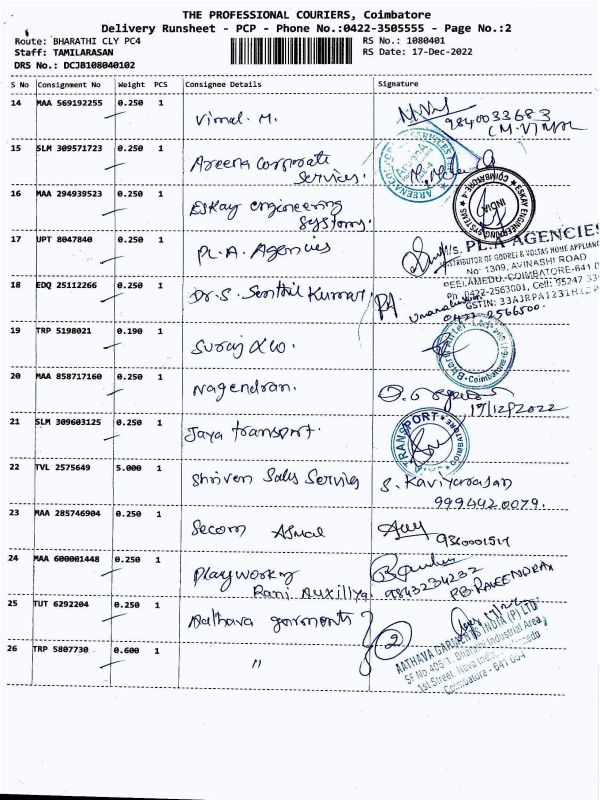 THE PROFESSIONAL COURIERS, Coimbatore
Delivery Runsheet - PCP - Phone No.:0422-3505555 - Page No.:2
Route: BHARATHI CLY PC4
RS No.: 1080401
Staff: TAMILARASAN
RS Date: 17-Dec-2022
DRS No.: DCJB108040102
S No Consignment No Weight PCS Consignee Details Signature
14 MAA 569192255 0.250 1 Vimal. M. 9840033683
(M.VIMAL
15 SLM 309571723 0.250 1 Areena Corporate
Services.
16 MAA 294939523 0.250 1 Eskay engineering
Systems.
ESKAY ENGINEERING SYSTEMS COIMBATORE INDIA
17 UPT 8047840 0.250 1 PL.A. Agencies
M/s. PL.A AGENCIES
DISTRIBUTOR OF GODREJ & VOLTAS HOME APPLIANC
No 1309, AVINASHI ROAD
PEELAMEDU, COIMBATORE-641 0
Ph 0422-2563001, Cell: 95247 33
GSTIN: 33AJRPA1231H1Z
18 EDQ 25112266 0.250 1 Dr. S. Senthil Kumar
0422-2566500.
19 TRP 5198021 0.190 1 Suraj
20 MAA 858717160 0.250 1 Nagendran.
17/12/2022
21 SLM 309603125 0.250 1 Jaya transport.
TRANSPORT COIMBATORE
22 TVL 2575649 5.000 1 Shriven Sales Service S. Kaviyarasan
9994420079.
23 MAA 285746904 0.250 1 Secom
24 MAA 600001448 0.250 1 Playworking
Rani Auxiliya 9843234232
P.B. RAVEENDRAN
25 TUT 6292204 0.250 1 Aathava garments 2
AATHAVA GARMENTS INDIA (P) LTD
SF No 405/1, Bharathi Industrial Area
1st Street, Nava India,
Coimbatore - 641 004
26 TRP 5807730 0.600 1 "